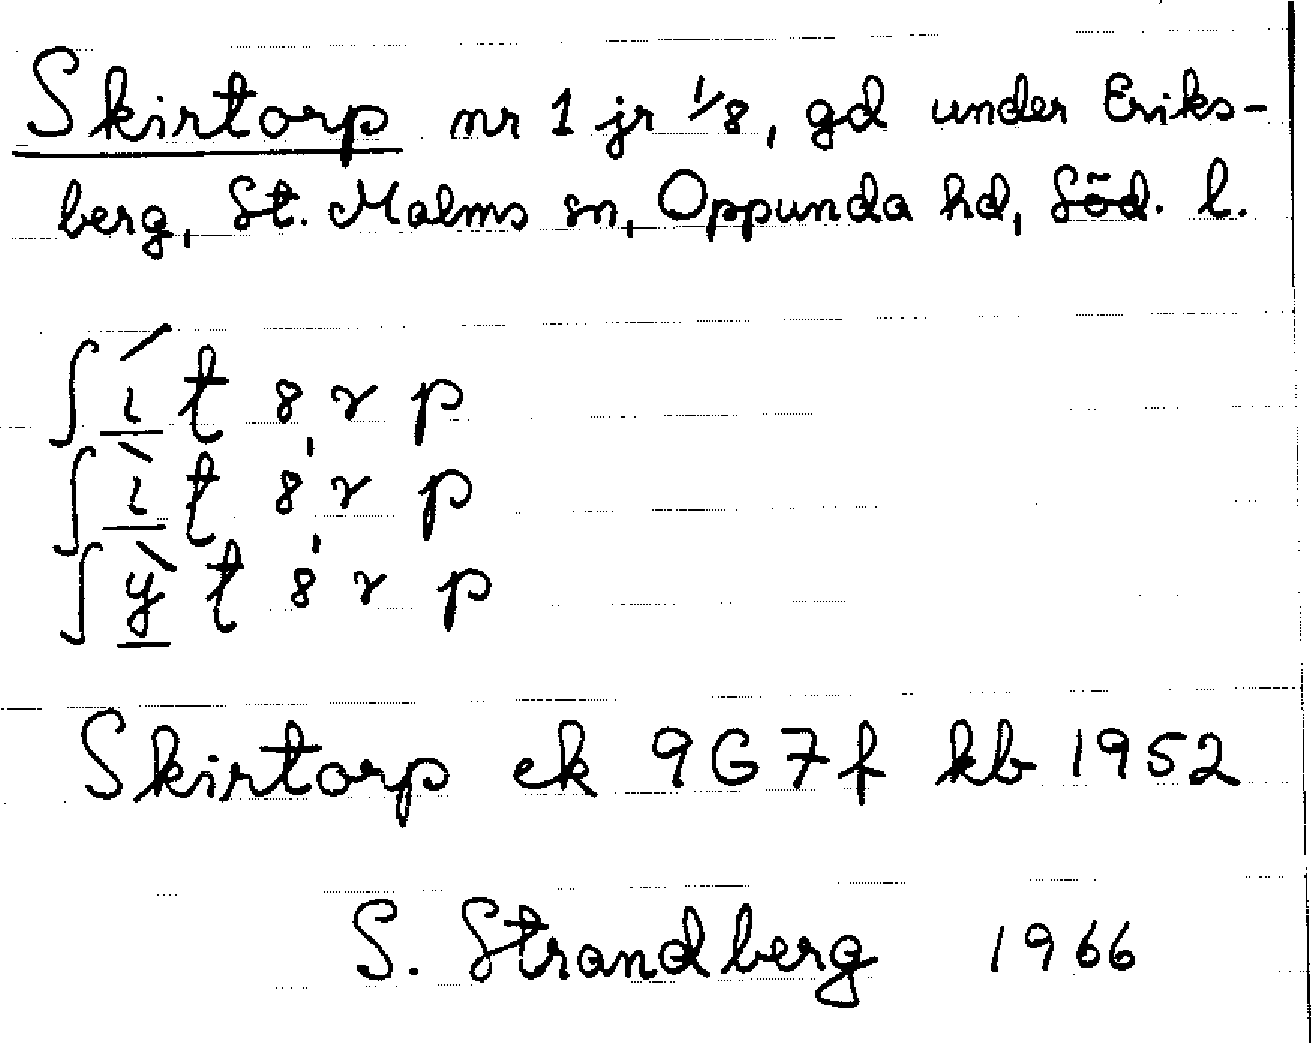 Skirtorp nr 1 jr 1/8, gd under Eriks-
berg, St. Malms sn, Oppunda hd, Söd. l.
ʃ í t 8 r p
ʃ ì t 8 r p
ʃ y̌ t 8 r p
Skirtorp ek 9G7f kb 1952
S. Strandberg 1966